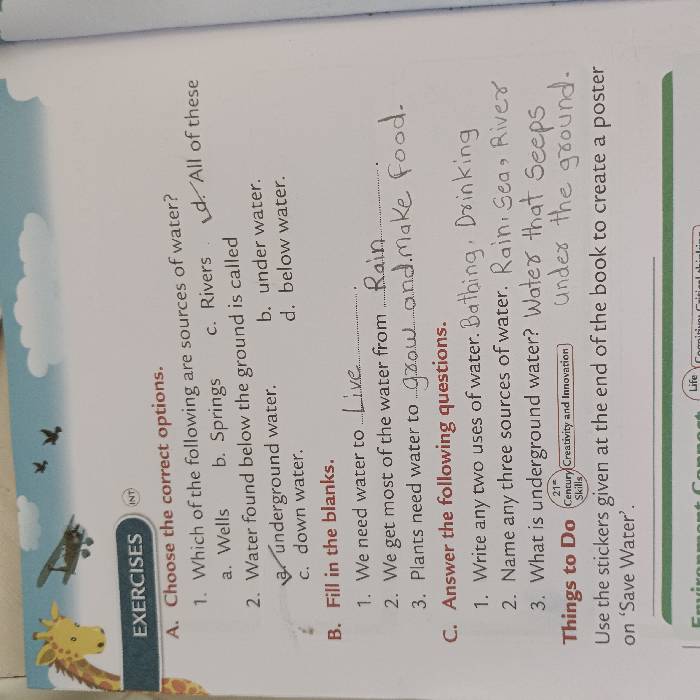 EXERCISES INT
A. Choose the correct options.
1. Which of the following are sources of water?
a. Wells b. Springs c. Rivers d. All of these
2. Water found below the ground is called
a. underground water. b. under water.
c. down water. d. below water.
B. Fill in the blanks.
1. We need water to Live.
2. We get most of the water from Rain.
3. Plants need water to grow and make food.
C. Answer the following questions.
1. Write any two uses of water. Bathing, Drinking
2. Name any three sources of water. Rain, Sea, River
3. What is underground water? Water that seeps
under the ground.
Things to Do 21st Century Skills Creativity and Innovation
Use the stickers given at the end of the book to create a poster
on ‘Save Water’.
Life